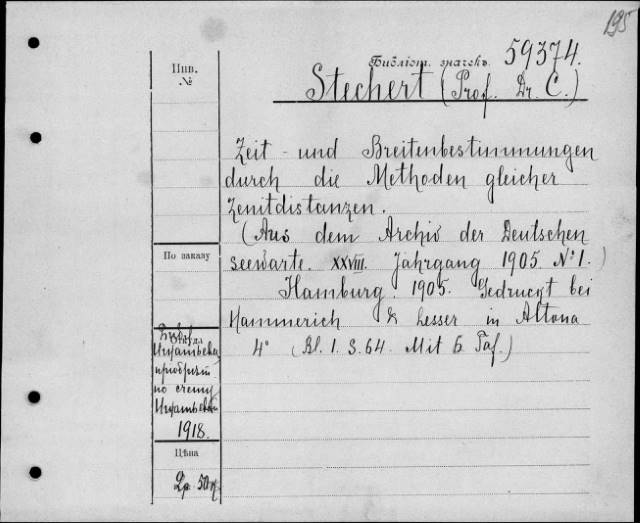 195
Библіот. значекъ 59374.
Инв.
№
Stechert (Prof. Dr. C.)
Zeit- und Breitenbestimmungen
durch die Methoden gleicher
Zenitdistanzen.
(Aus dem Archiv der Deutschen
Seewarte. XXVIII. Jahrgang 1905 № 1.)
Hamburg. 1905. Gedruckt bei
Hammerich & Lesser in Altona
4° (Bl. 1. S. 64. Mit 5 Taf.)
По заказу
Откуда
Игнатьева
по счету
1918.
Цѣна
2р. 50к.